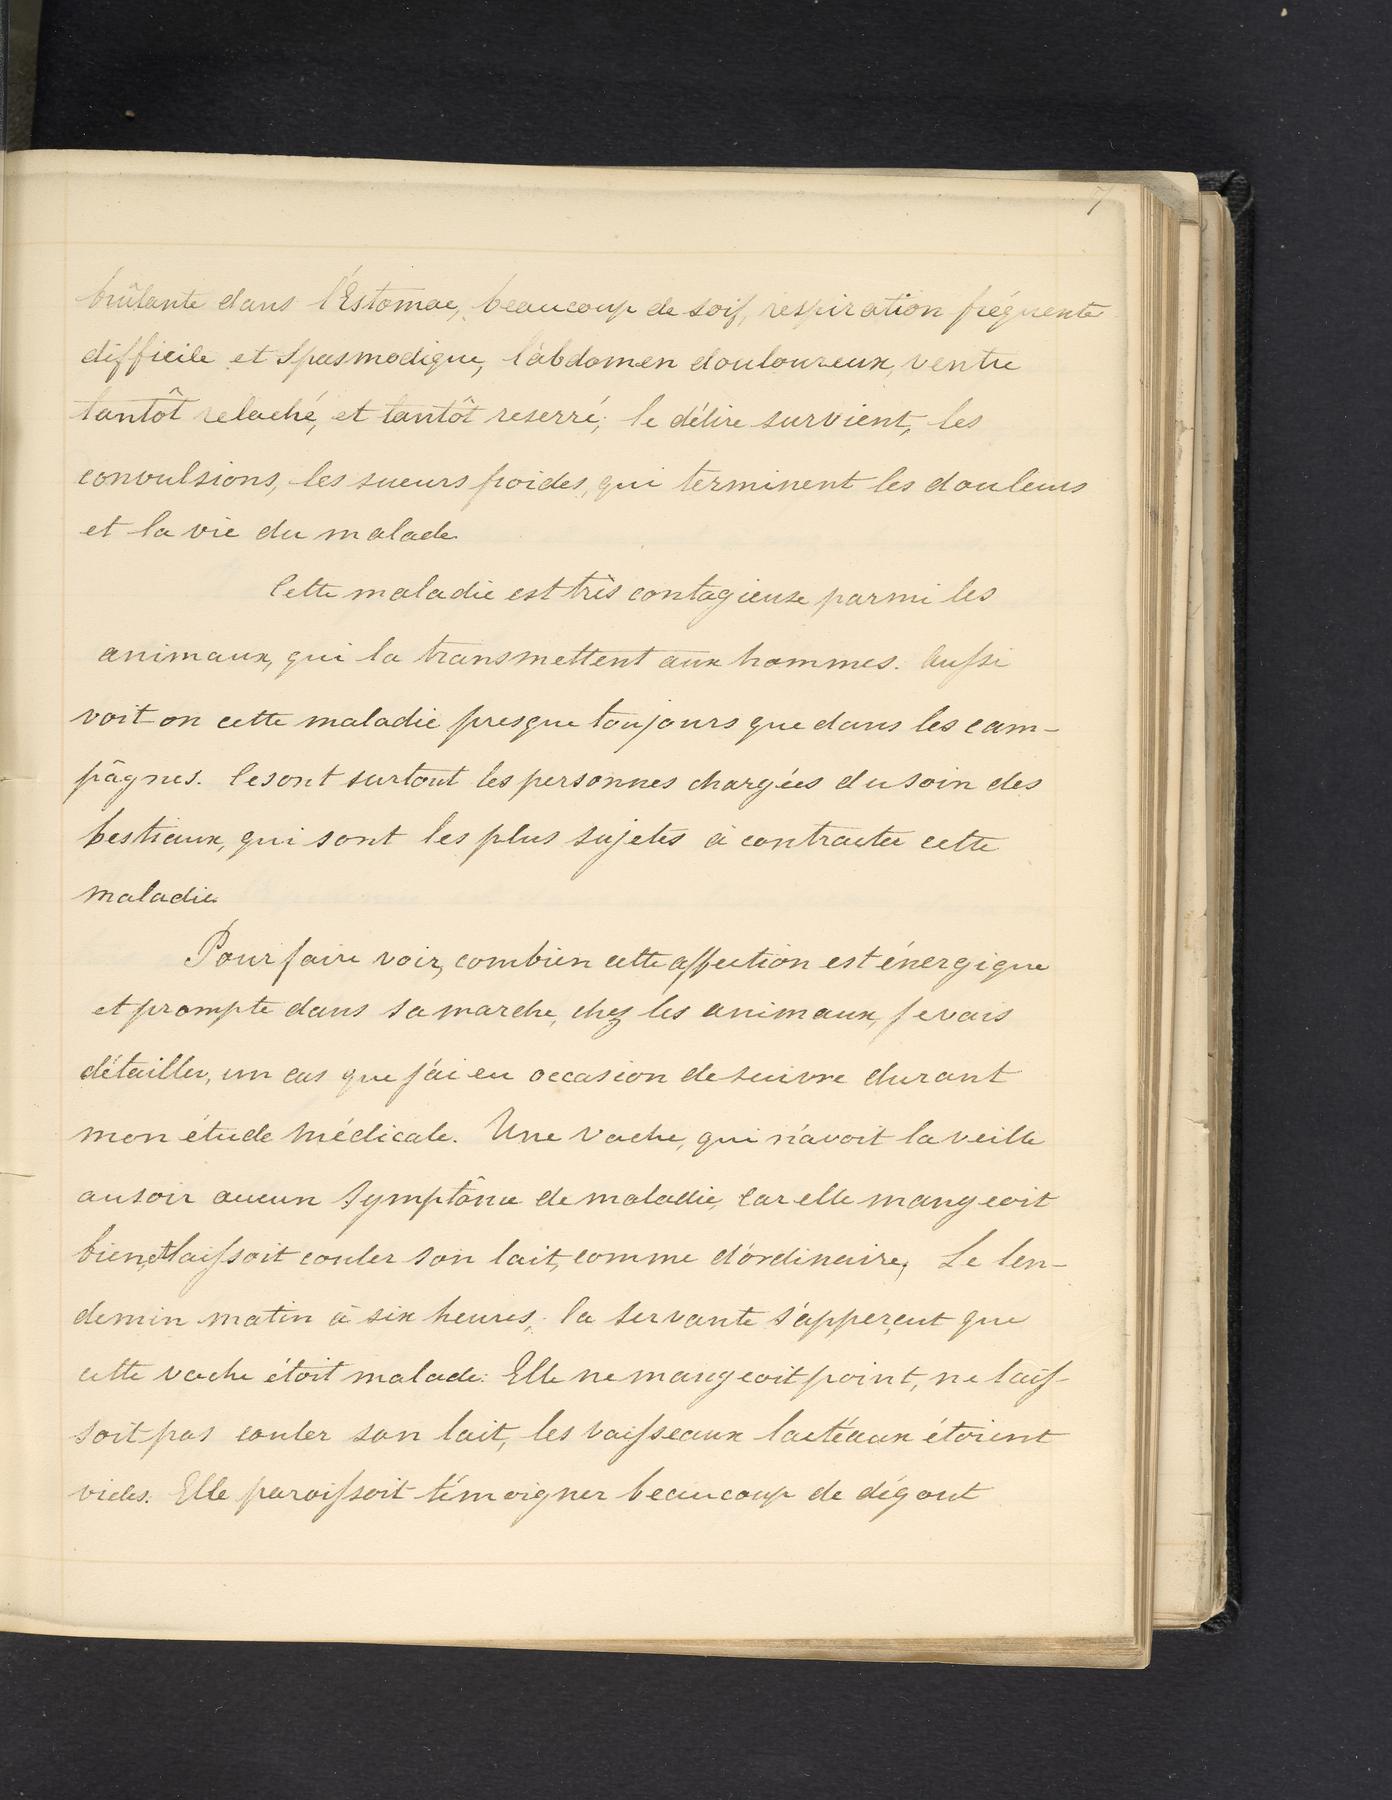 7
brûlante dans l'Estomac, beaucoup de soif, respiration fréquente
difficile et spasmodique, l'abdomen douloureux, ventre
tantôt relaché, et tantôt reserré; le délire survient, les
convulsions, les sueurs froides, qui terminent les douleurs
et la vie du malade
Cette maladie est très contagieuse parmi les
animaux, qui la transmettent aux hommes. Aussi
voit on cette maladie presque toujours que dans les cam-
pâgnes. Ce sont surtout les personnes chargées du soin des
bestiaux, qui sont les plus sujetes à contracter cette
maladie
Pour faire voir, combien cette affection est énergique
et prompte dans sa marche, chez les animaux, je vais
détailler, un cas que j'ai eu occasion de suivre durant
mon étude médicale. Une vache, qui n'avoit la veille
au soir aucun symptôme de maladie, car elle mangeoit
bien et laissoit couler son lait, comme d'ordinaire, Le len-
demin matin à six heures, la servante s'apperçut que
cette vache étoit malade: Elle ne mangeoit point, ne lais-
soit pas couler son lait, les vaisseaux lactéaux étoient
vides. Elle paroissoit témoigner beaucoup de dégout